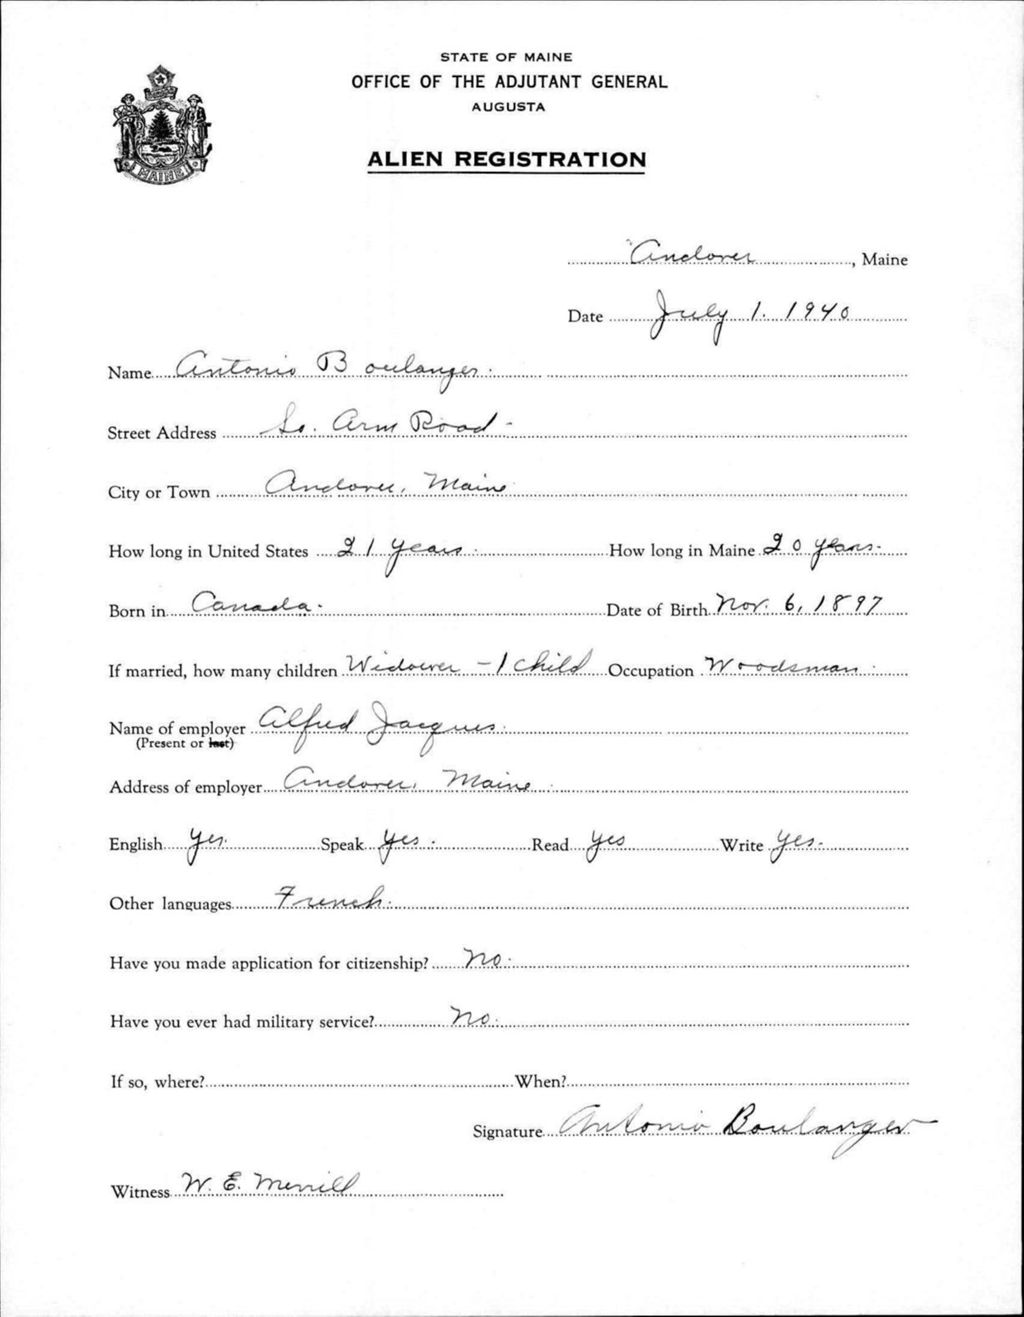 STATE OF MAINE
OFFICE OF THE ADJUTANT GENERAL
AUGUSTA
ALIEN REGISTRATION
MAINE
Andover, Maine
Date July 1. 1940
Name Antonio Boulanger.
Street Address So. Arm Road -
City or Town Andover, Maine
How long in United States 21 years. How long in Maine 20 years.
Born in Canada. Date of Birth Nov. 6, 1897
If married, how many children Widower - 1 child Occupation Woodsman.
Name of employer Alfred Jacques.
(Present or last)
Address of employer Andover, Maine.
English Yes. Speak Yes. Read Yes Write Yes.
Other languages French.
Have you made application for citizenship? No.
Have you ever had military service? No.
If so, where? When?
Signature Antonio Boulanger
Witness W. E. Merrill